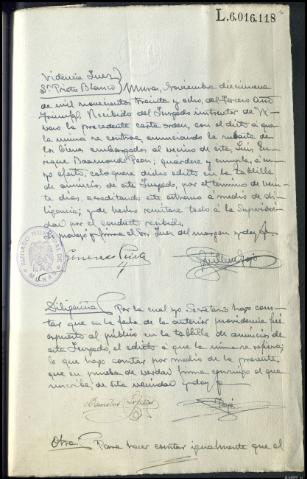 L.6.016.118
Providencia Juez
Sr. Prieto Blanco
Muros, Noviembre diecinueve
de mil novecientos treinta y ocho del Tercer Año
Triunfal. Recibido del Juzgado instructor de
la precedente carta orden, con el edicto a que
la misma se contrae, anunciando la subasta de
los bienes embargados al vecino de esta,
guardese y cumpla, a cu-
yo efecto, coloquese dicho edicto en la tablilla
de anuncios de este Juzgado, por el termino de vein-
te dias, acreditando este extremo a medio de di-
ligencia; y de hecho remitase todo a la Superiori-
dad por el conducto recibido.
Lo proveyo y firma el Sr. Juez del margen, y doy fe.
Diligencia Por la cual yo Secretario hago cons-
tar que en la fecha de la anterior providencia he
expuesto al público en la tablilla de anuncios de
este Juzgado, el edicto a que la misma se refiere;
lo que hago constar por medio de la presente,
que en prueba de verdad firma conmigo el
de esta vecindad y doy fe
Otra Para hacer constar igualmente que el